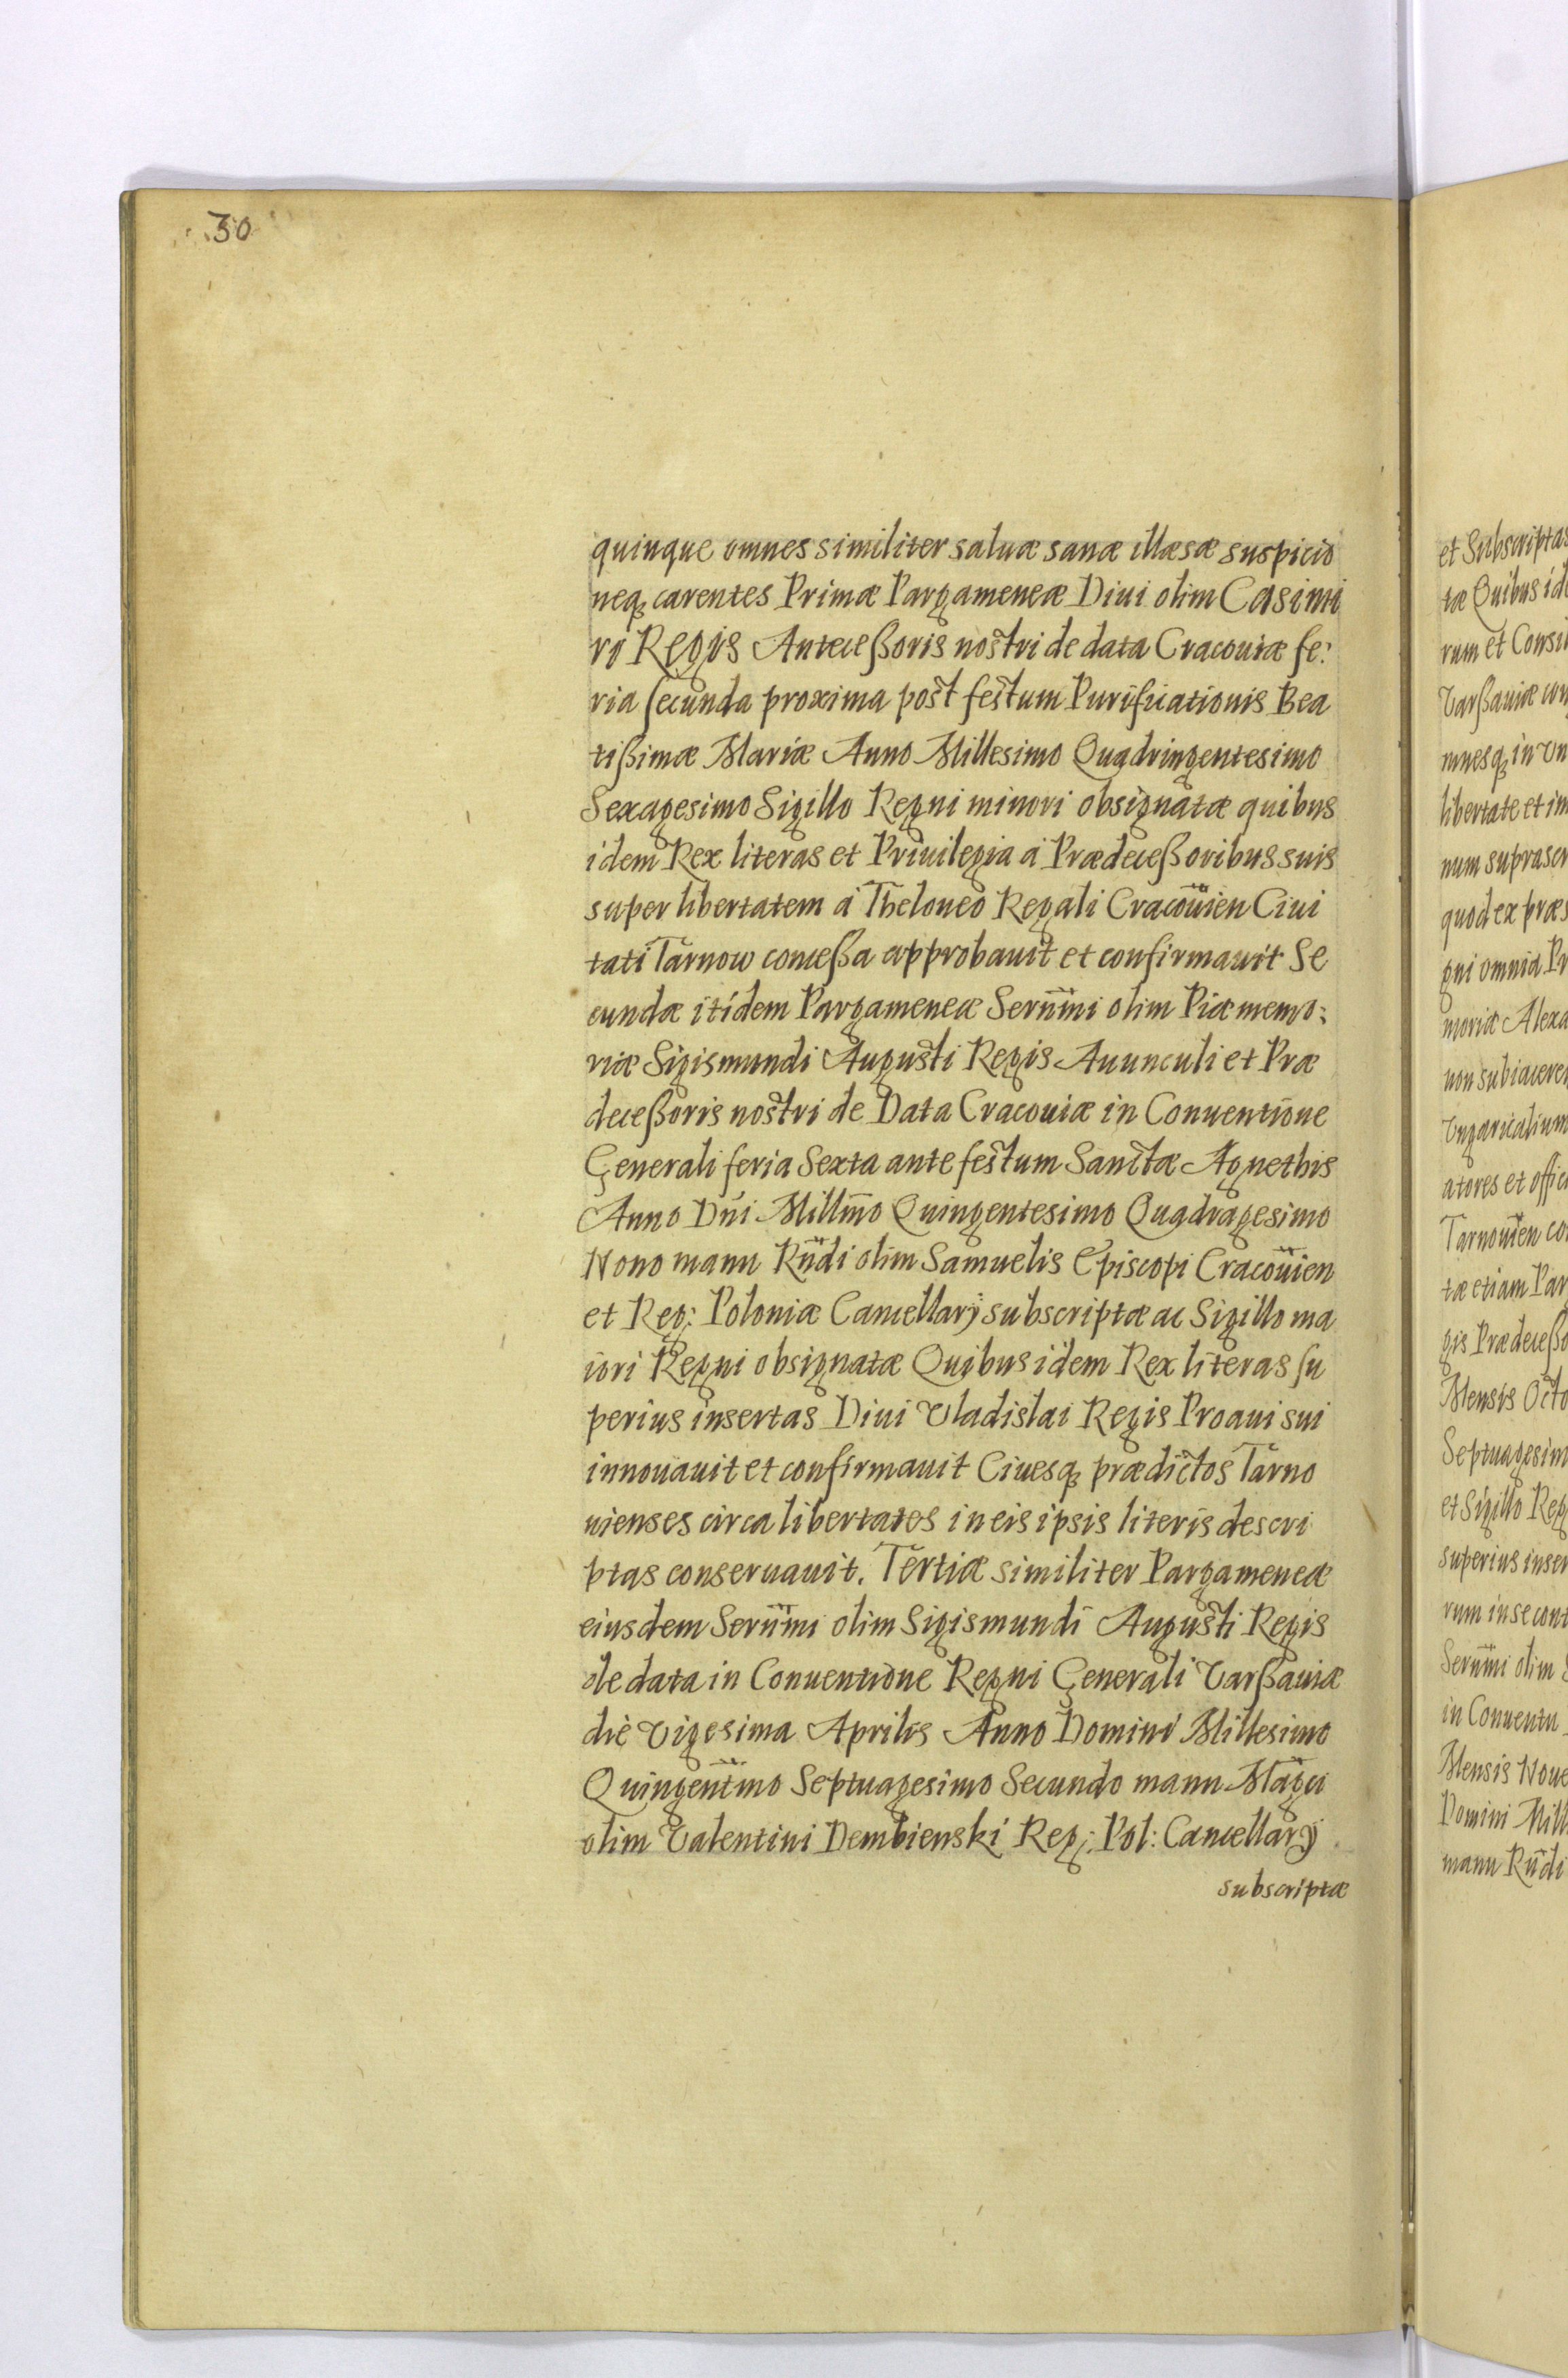 30
quinque omnes similiter saluæ sanæ illæsæ suspicio
neq carentes Primæ Pargameneæ Diui olim Casimi
ri Regis Anteceßoris nostri de data Cracouiæ fe:
ria secunda proxima post festum Purificationis Bea
tißimæ Mariæ Anno Millesimo Quadringentesimo
Sexagesimo Sigillo Regni minori obsignatæ quibus
idem Rex literas et Priuilegia a Prædeceßoribus suis
super libertatem a Theloneo Regali Cracouien Ciui
tati Tarnow conceßa approbauit et confirmauit Se
cundæ itidem Pargameneæ Sernmi olim Piæ memo:
riæ Sigismundi Augusti Regis Auunculi et Præ
deceßoris nostri de Data Cracouiæ in Conuentione
Generali feria Sexta ante festum Sanctæ Agnethis
Anno Dni Millmo Quingentesimo Quadragesimo
Nono manu Rndi olim Samuelis Episcopi Cracouien
et Reg: Poloniæ Cancellarÿ subscriptæ ac Sigillo ma
iori Regni obsignatæ Quibus idem Rex literas su
perius insertas Diui Vladislai Regis Proaui sui
innouauit et confirmauit Ciuesq prædictos Tarno
uienses circa libertates in eis ipsis literis descri
ptas conseruauit. Tertiæ similiter Pargameneæ
eiusdem Sernmi olim Sigismundi Augusti Regis
de data in Conuentione Regni Generali Varßauiæ
die Vigesima Aprilis Anno Domini Millesimo
Quingentmo Septuagesimo Secundo manu Magci
olim Valentini Dembienski Reg: Pol: Cancellarÿ
subscriptæ
et Subscriptas
tæ Quibus
rum et
Varßauiæ
mnesq in
libertate et
num
quod ex
gni omnia
moriæ
non
atores et
Tarnouien
tæ etiam
gis
Mensis
et Sigillo
superius
rum in se
Sernmi olim
in Conuentu
Mensis
Domini
manu Rndi